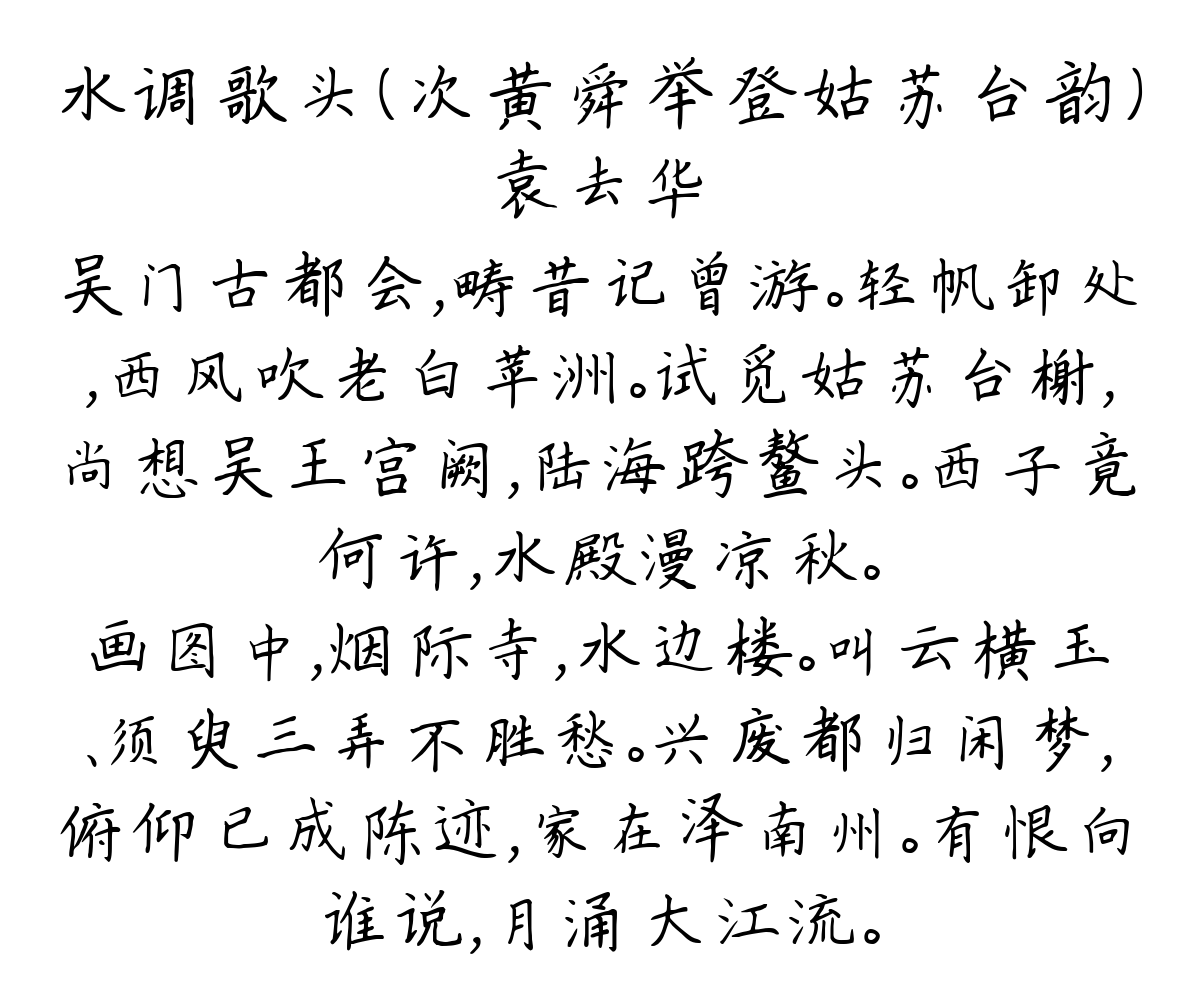 水调歌头(次黄舜举登姑苏台韵)
袁去华
吴门古都会,畴昔记曾游。轻帆卸处
,西风吹老白苹洲。试觅姑苏台榭,
尚想吴王宫阙,陆海跨鳌头。西子竟
何许,水殿漫凉秋。
画图中,烟际寺,水边楼。叫云横玉
、须臾三弄不胜愁。兴废都归闲梦,
俯仰已成陈迹,家在泽南州。有恨向
谁说,月涌大江流。